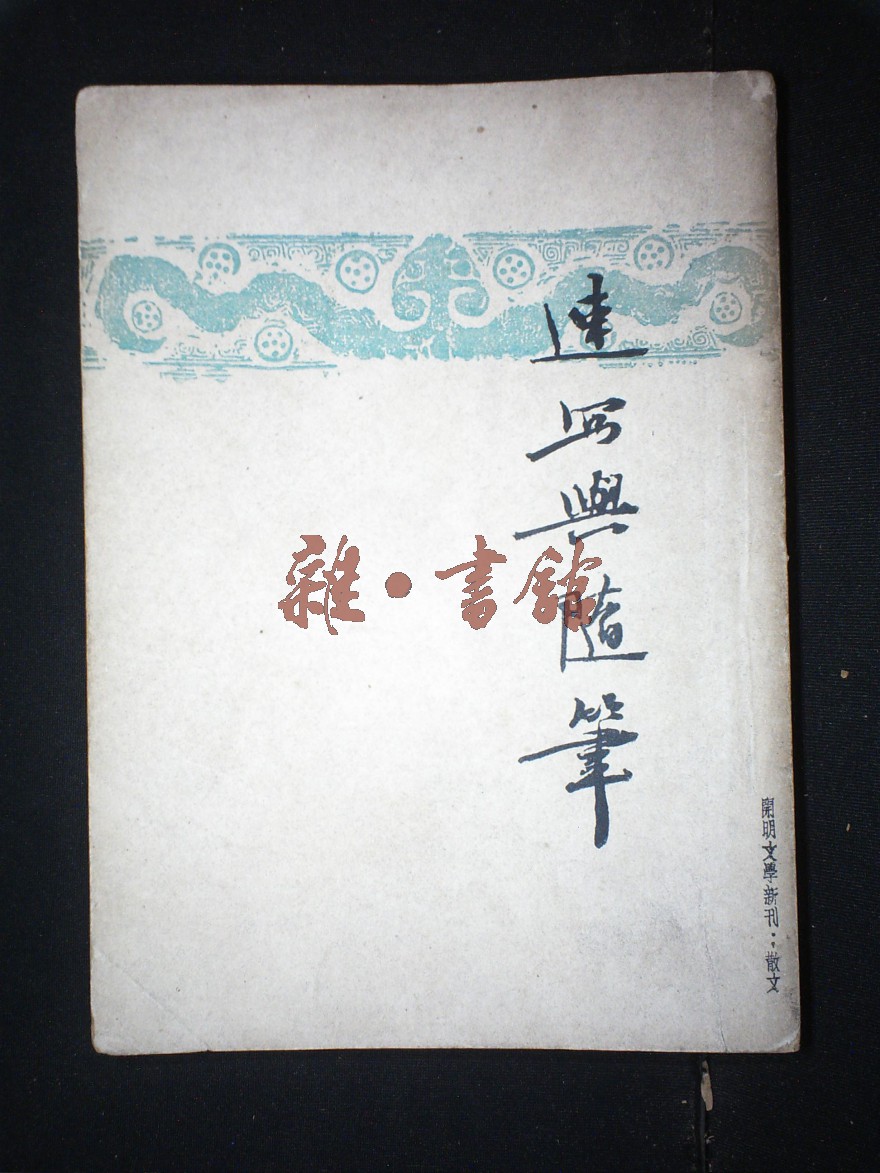 速写與隨筆
雜•書館
開明文學新刊·散文